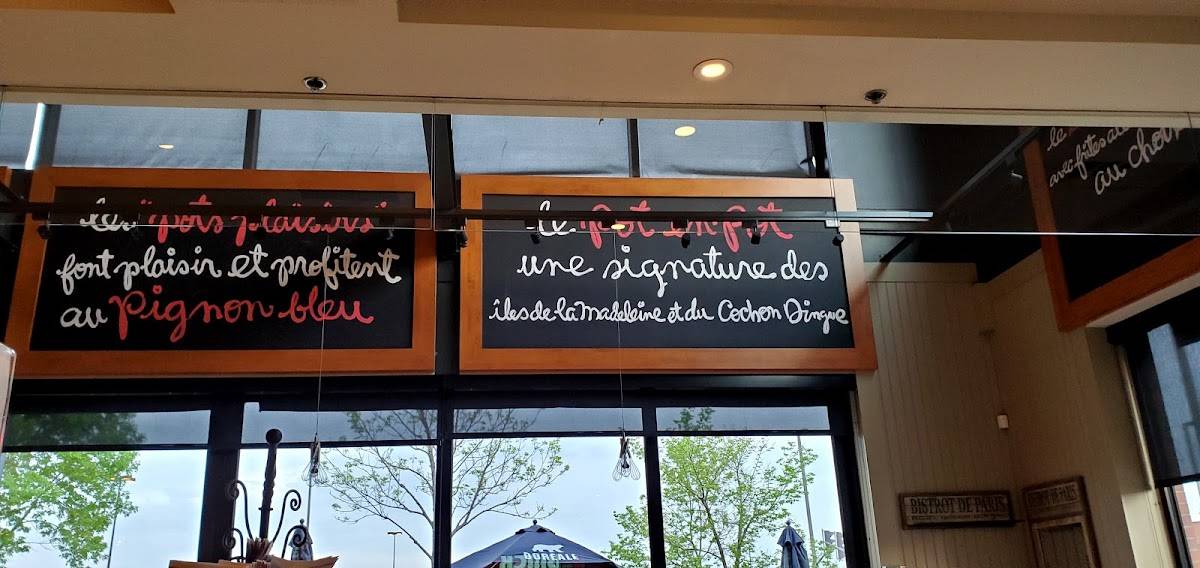 les "pots plaisirs"
font plaisir et profitent
au pignon bleu
le pot en pot
une signature des
îles de la madeleine et du Cochon Dingue
la
avec frites a
au choi
BISTROT DE PARIS
BORÉALE